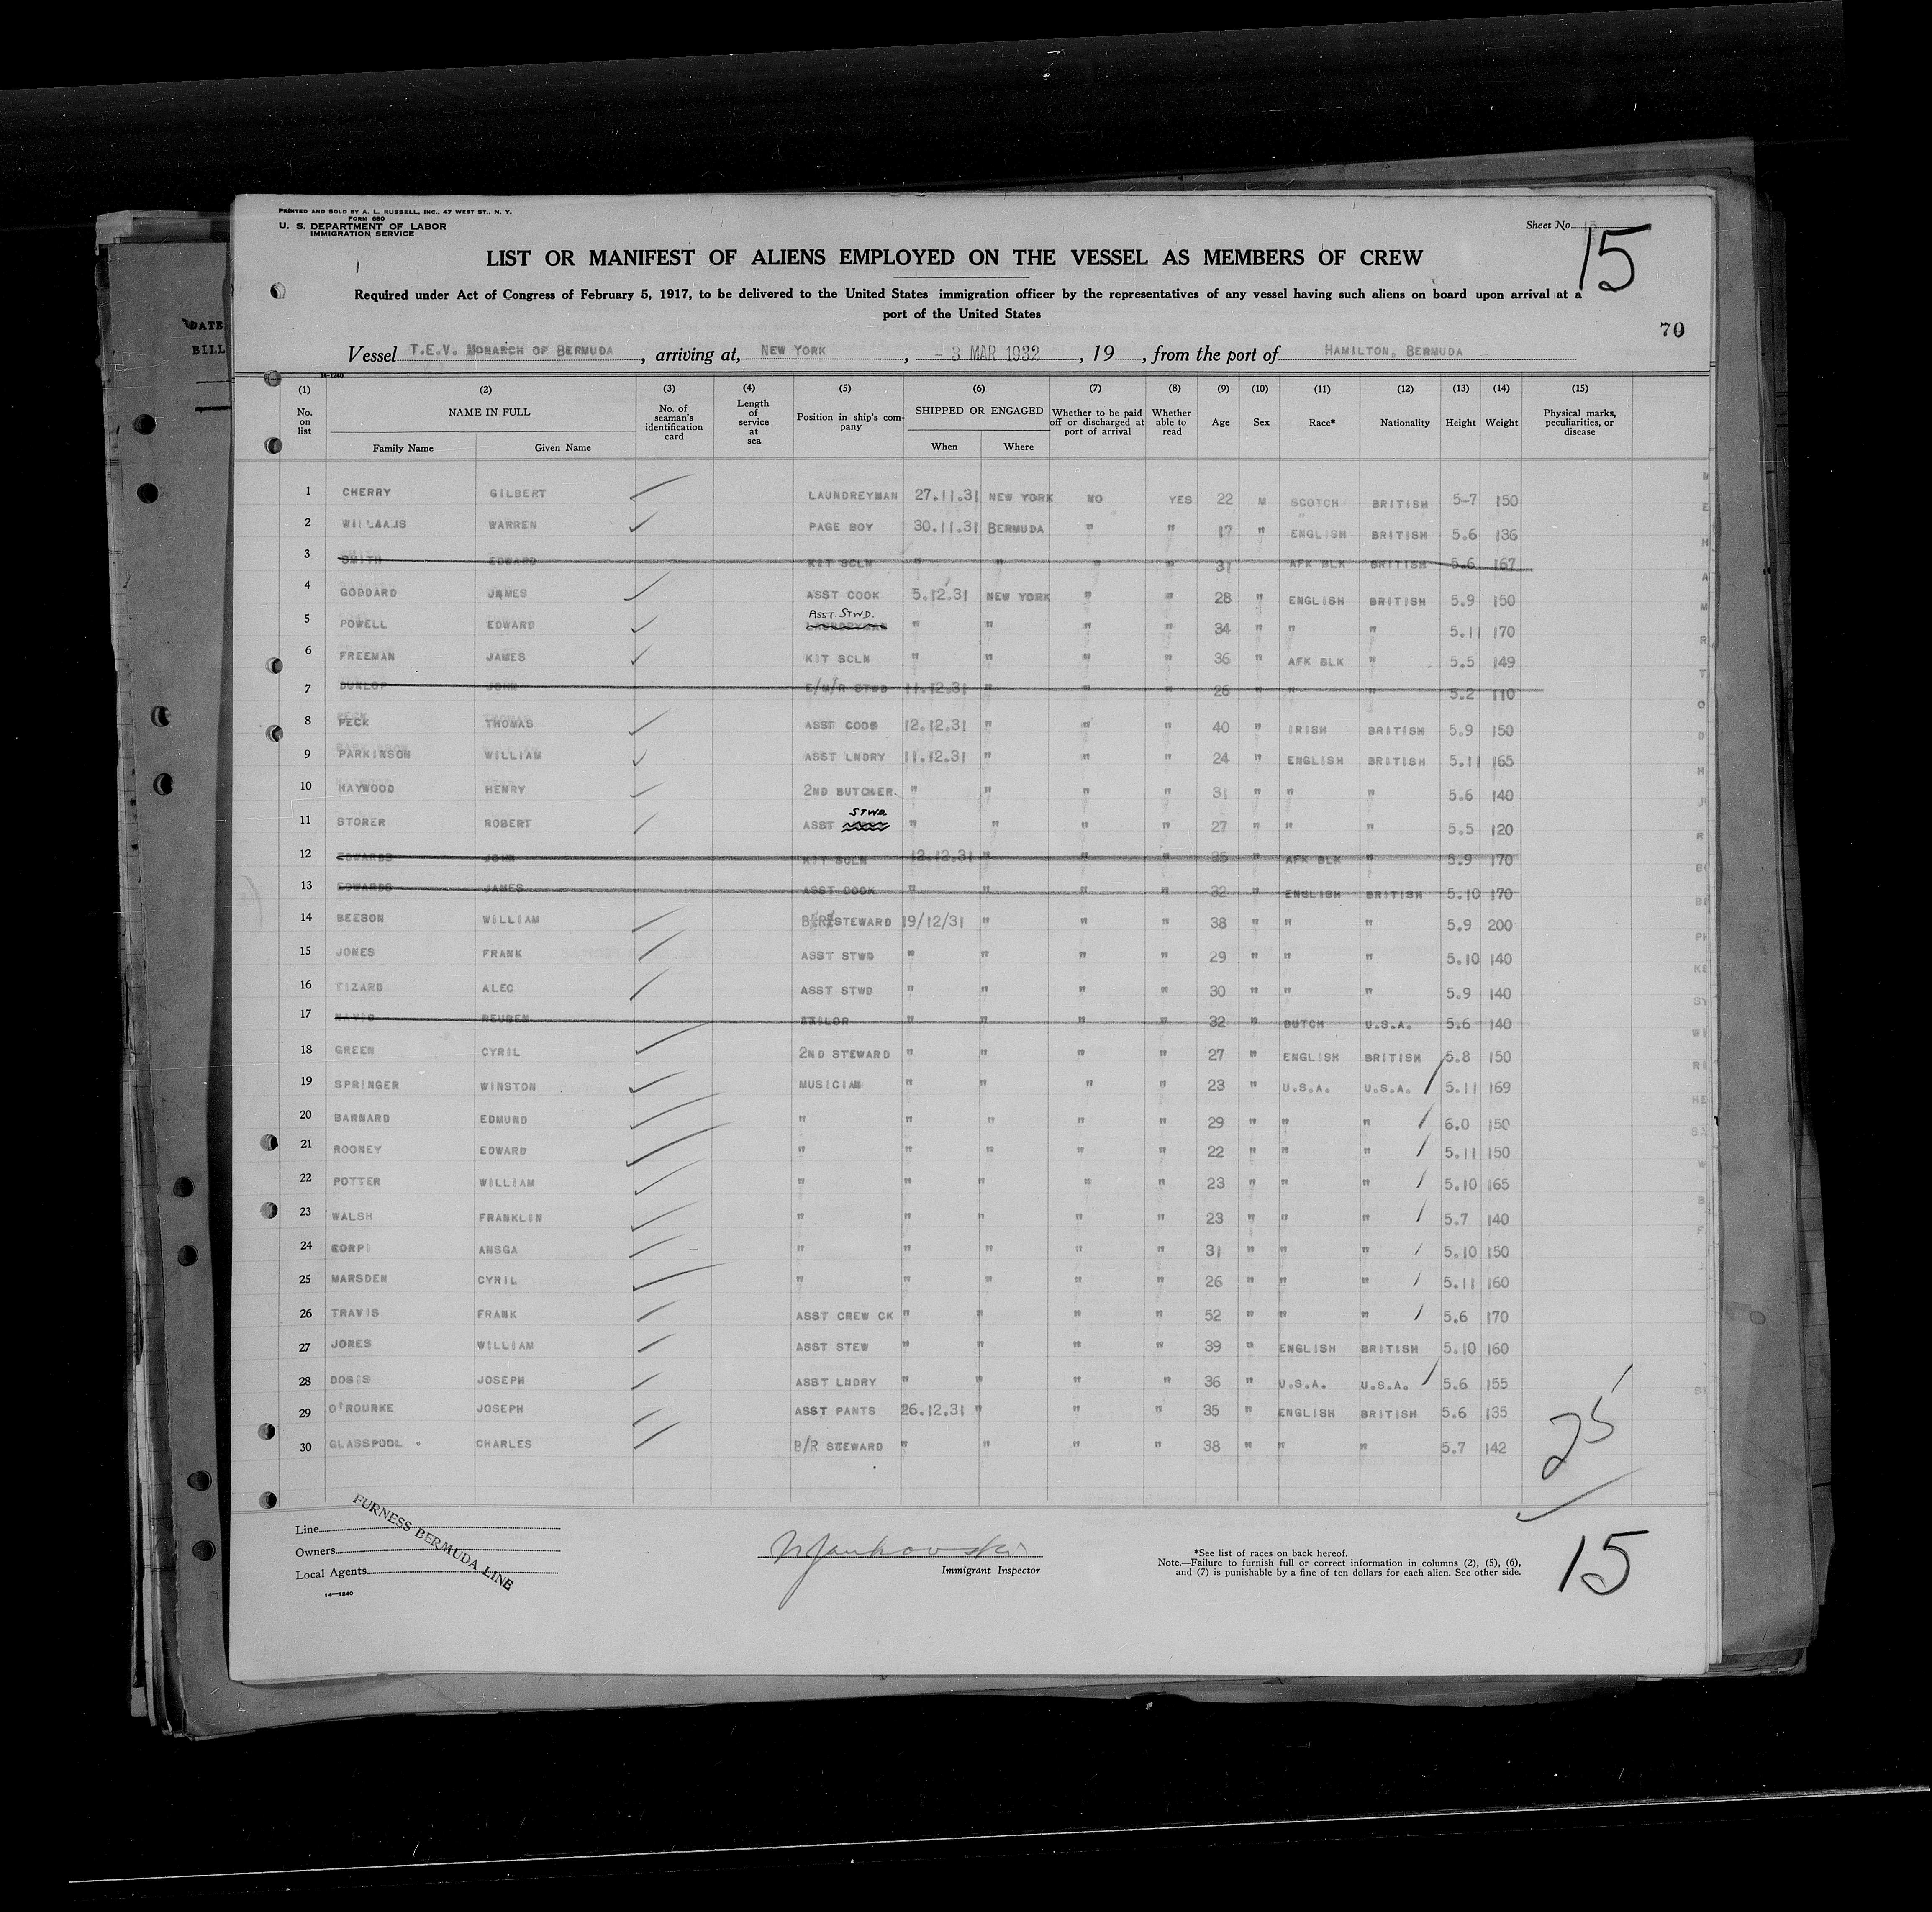 PRINTED AND SOLD BY A. L. RUSSELL, INC., 47 WEST ST., N. Y.
FORM 680
U. S. DEPARTMENT OF LABOR
IMMIGRATION SERVICE
Sheet No. 15
15
LIST OR MANIFEST OF ALIENS EMPLOYED ON THE VESSEL AS MEMBERS OF CREW
Required under Act of Congress of February 5, 1917, to be delivered to the United States immigration officer by the representatives of any vessel having such aliens on board upon arrival at a
port of the United States
70
DATE
BILL
Vessel T.E.V. MONARCH OF BERMUDA, arriving at, NEW YORK, - 3 MAR 1932, 19, from the port of HAMILTON, BERMUDA
14-1240
(1) (2) (3) (4) (5) (6) (7) (8) (9) (10) (11) (12) (13) (14) (15)
No. on list NAME IN FULL Family Name Given Name No. of seaman's identification card Length of service at sea Position in ship's company SHIPPED OR ENGAGED When Where Whether to be paid off or discharged at port of arrival Whether able to read Age Sex Race* Nationality Height Weight Physical marks, peculiarities, or disease
1 CHERRY GILBERT LAUNDREYMAN 27.11.31 NEW YORK NO YES 22 M SCOTCH BRITISH 5-7 150
2 WARREN PAGE BOY 30.11.31 BERMUDA " " 17 " ENGLISH BRITISH 5.6 136
3 SMITH EDWARD KIT SCLN " " " " 31 AFK BLK BRITISH 5.6 167
4 GODDARD JAMES ASST COOK 5.12.31 NEW YORK " " 28 " ENGLISH BRITISH 5.9 150
5 POWELL EDWARD ASST. STWD. LAUNDREYMAN " " " " 34 " " " 5.11 170
6 FREEMAN JAMES KIT SCLN " " " " 36 " AFK BLK " 5.5 149
7 DUNLOP JOHN E/M/R STWD 11.12.31 " " " 26 " " " 5.2 110
8 PECK THOMAS ASST COOK 12.12.31 " " " 40 " IRISH BRITISH 5.9 150
9 PARKINSON WILLIAM ASST LNDRY 11.12.31 " " " 24 " ENGLISH BRITISH 5.11 165
10 HAYWOOD HENRY 2ND BUTCHER. " " " " 31 " " " 5.6 140
11 STORER ROBERT ASST STWD. " " " " 27 " " " 5.5 120
12 EDWARDS JOHN KIT SCLN 12.12.31 " " " 35 " AFK BLK " 5.9 170
13 EDWARDS JAMES ASST COOK " " " " 32 " ENGLISH BRITISH 5.10 170
14 BEESON WILLIAM B/R STEWARD 19/12/31 " " " 38 " " " 5.9 200
15 JONES FRANK ASST STWD " " " " 29 " " " 5.10 140
16 TIZARD ALEC ASST STWD " " " " 30 " " " 5.9 140
17 REUBEN " " " " 32 " DUTCH U.S.A. 5.6 140
18 GREEN CYRIL 2ND STEWARD " " " " 27 " ENGLISH BRITISH 5.8 150
19 SPRINGER WINSTON MUSICIAN " " " " 23 " U.S.A. U.S.A. 5.11 169
20 BARNARD EDMUND " " " " " 29 " " " 6.0 150
21 ROONEY EDWARD " " " " " 22 " " " 5.11 150
22 POTTER WILLIAM " " " " " 23 " " " 5.10 165
23 WALSH FRANKLIN " " " " " 23 " " " 5.7 140
24 ANSGA " " " " " 31 " " " 5.10 150
25 MARSDEN CYRIL " " " " " 26 " " " 5.11 160
26 TRAVIS FRANK ASST CREW CK " " " " 52 " " " 5.6 170
27 JONES WILLIAM ASST STEW " " " " 39 " ENGLISH BRITISH 5.10 160
28 JOSEPH ASST LNDRY " " " " 36 " U.S.A. U.S.A. 5.6 155
29 O'ROURKE JOSEPH ASST PANTS 26.12.31 " " " 35 " ENGLISH BRITISH 5.6 135
30 GLASSPOOL CHARLES B/R STEWARD " " " " 38 " " " 5.7 142
25
15
Line
Owners
Local Agents
FURNESS BERMUDA LINE
14-1240
Immigrant Inspector
*See list of races on back hereof.
Note.—Failure to furnish full or correct information in columns (2), (5), (6),
and (7) is punishable by a fine of ten dollars for each alien. See other side.